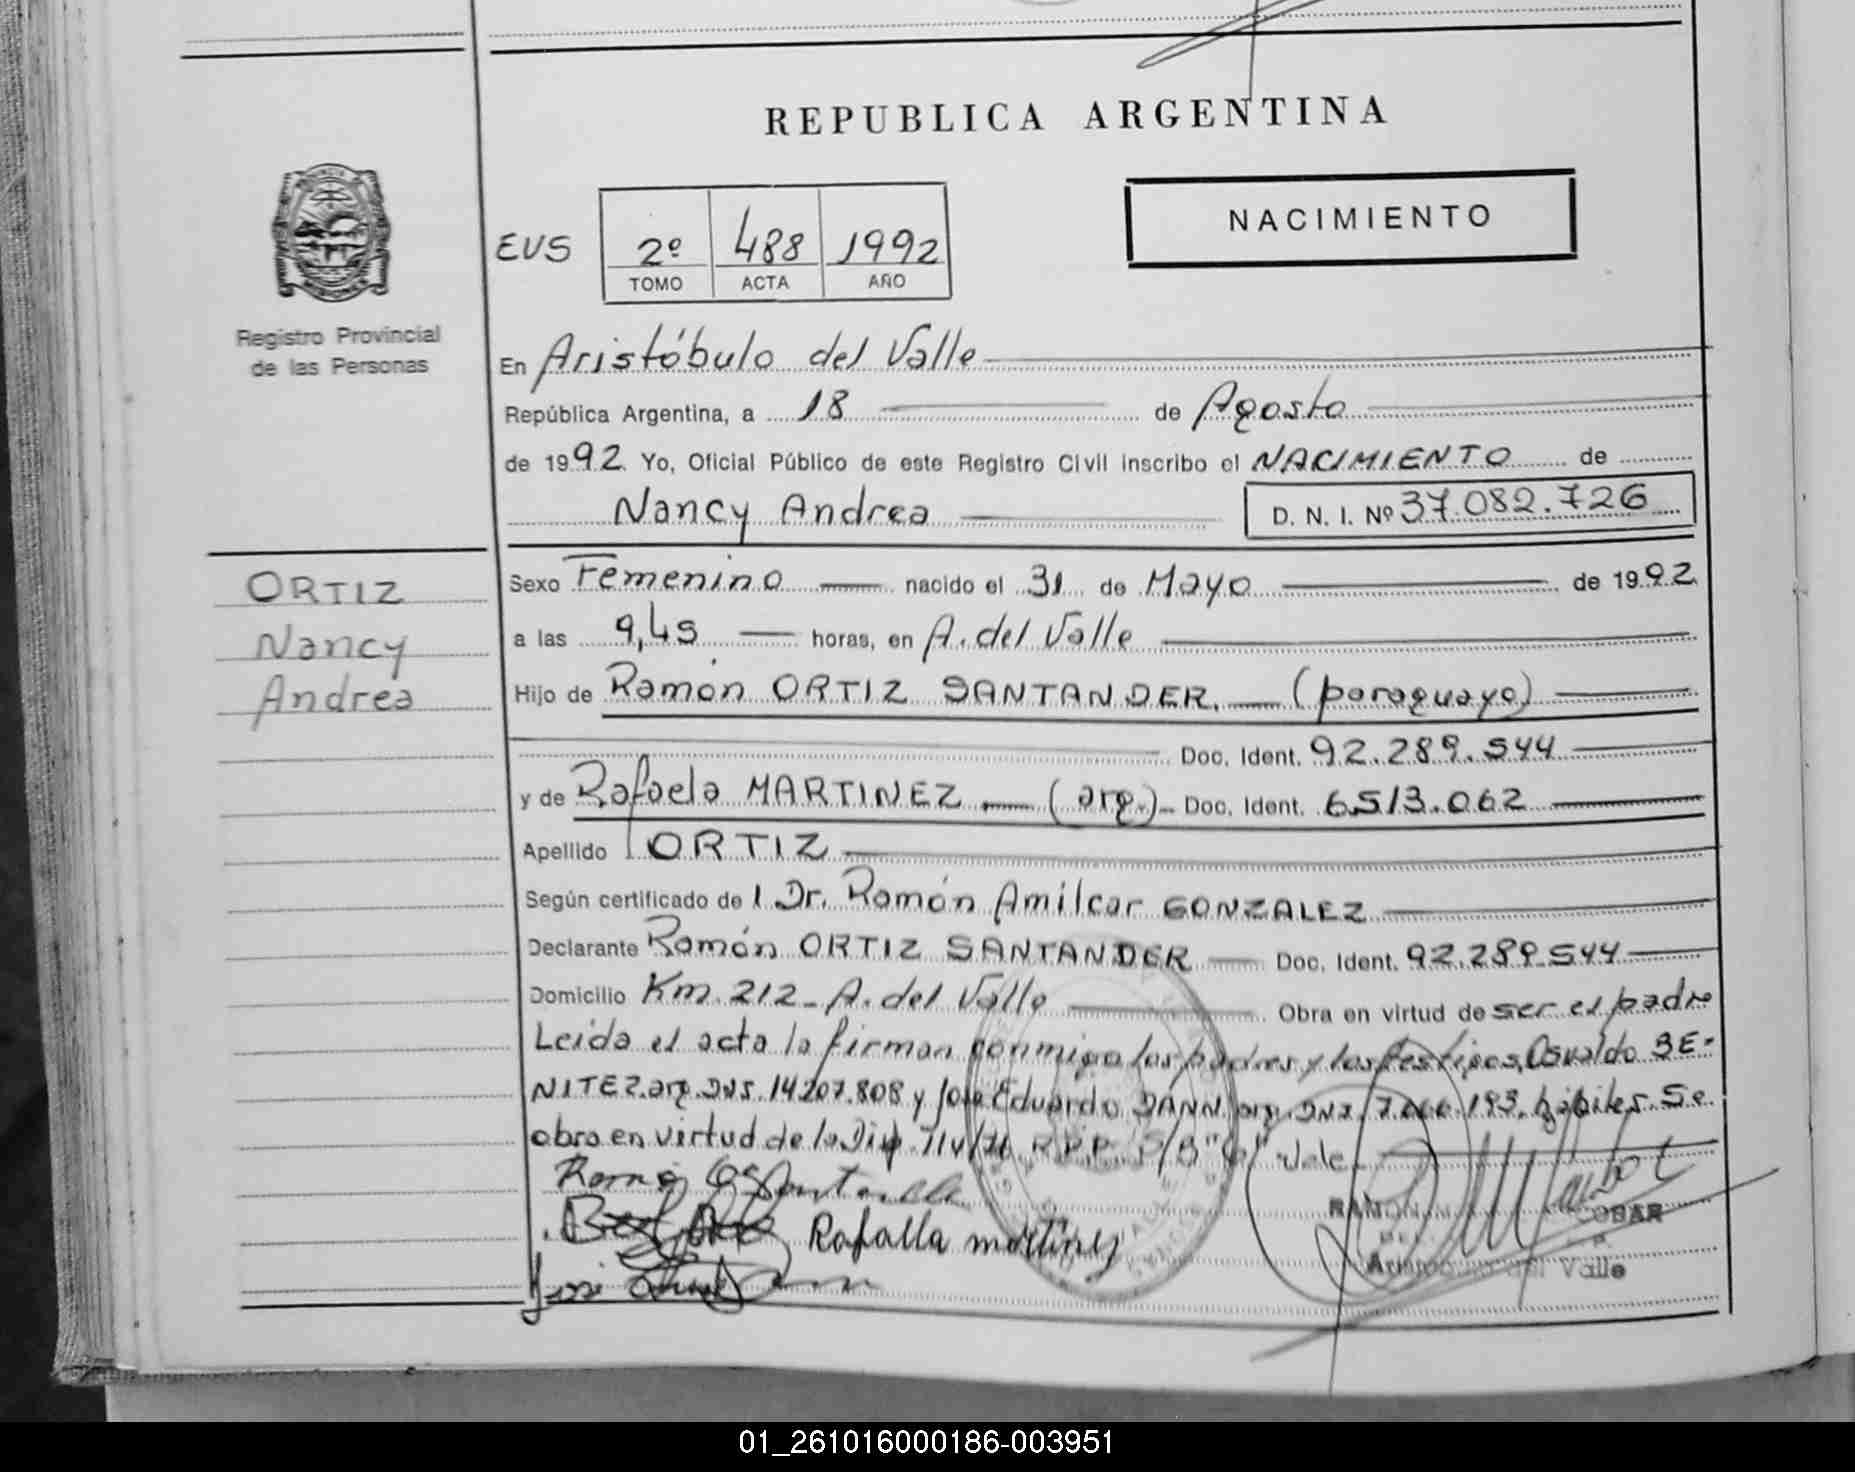 REPUBLICA ARGENTINA
NACIMIENTO
EVS 2º 488 1992
TOMO ACTA AÑO
Registro Provincial
de las Personas
En Aristóbulo del Valle
República Argentina, a 18 de Agosto
de 1992 Yo, Oficial Público de este Registro Civil inscribo el NACIMIENTO de
Nancy Andrea D. N. I. Nº 37.082.726
ORTIZ
Nancy
Andrea
Sexo Femenino nacido el 31 de Mayo de 1992
a las 9,45 horas, en A. del Valle
Hijo de Ramón ORTIZ SANTANDER. (paraguayo)
Doc. Ident. 92.289.544
y de Rafaela MARTINEZ (arg.) Doc. Ident. 6513.062
Apellido ORTIZ
Según certificado de l Dr. Ramón Amilcar GONZALEZ
Declarante Ramón ORTIZ SANTANDER Doc. Ident. 92.289.544
Domicilio Km. 212 - A. del Valle Obra en virtud de ser el padre
Leida el acta la firman conmigo los padres y los testigos, Osvaldo BE-
NITEZ. arg. DNI. 14.207.808 y José Eduardo DANN arg. DNI. 193. hábiles. Se
obra en virtud de la R.P.P. Vale
Rafaela martinez
Valle
01_261016000186-003951